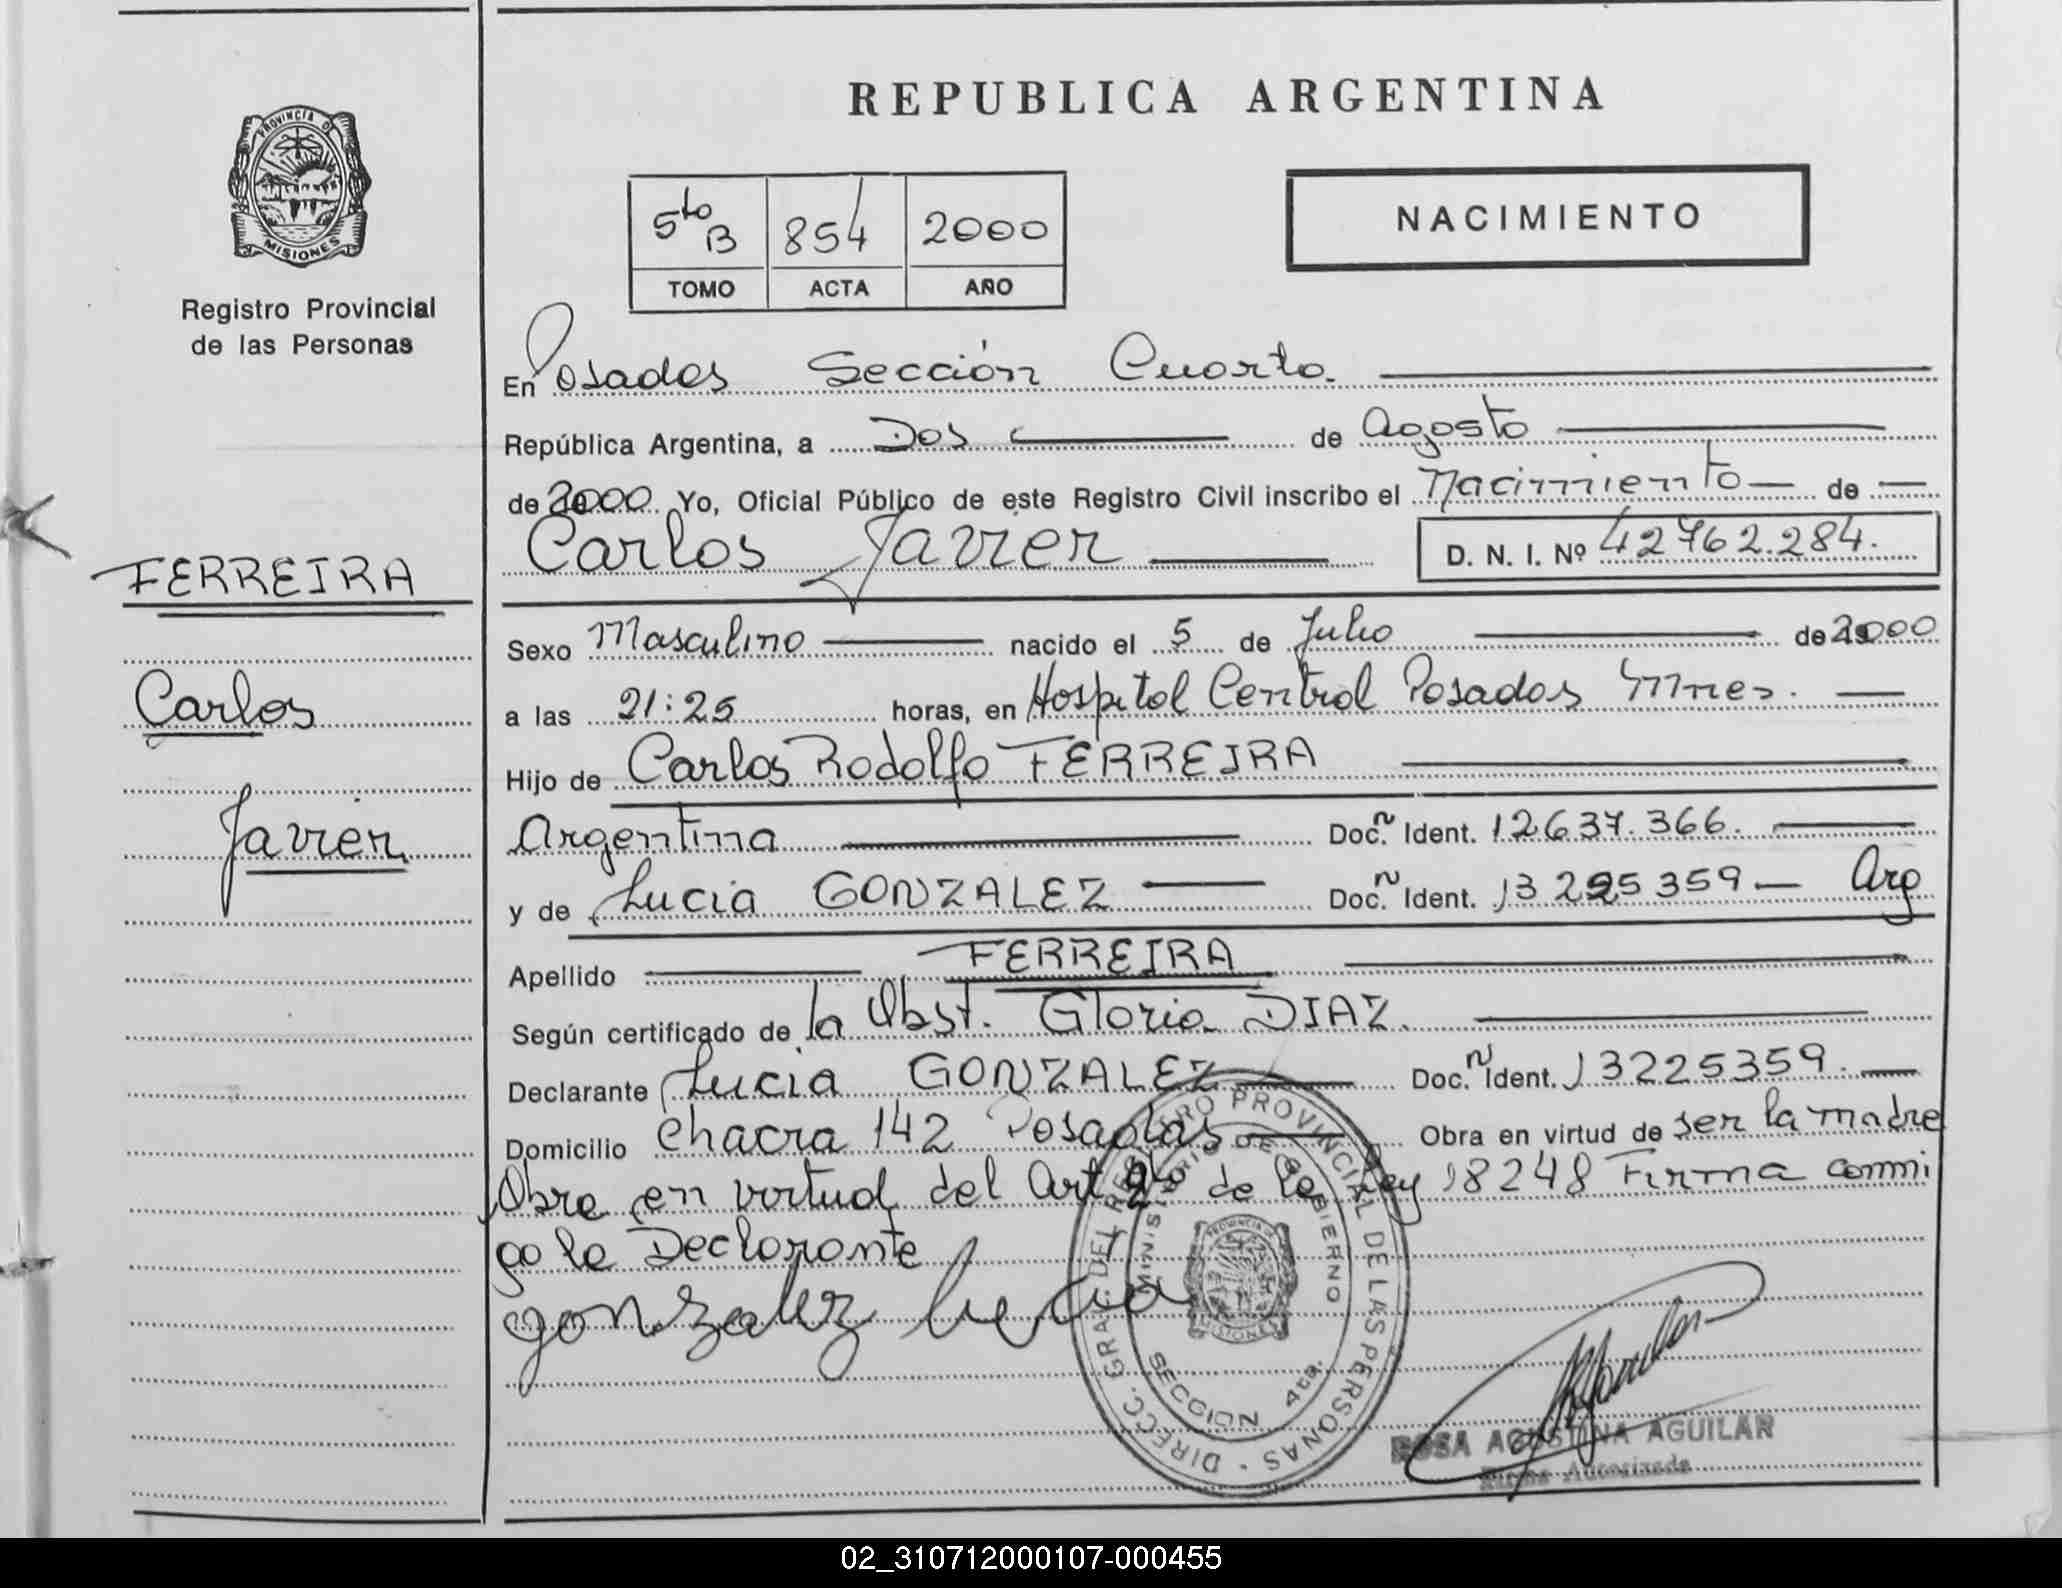 PROVINCIA DE
MISIONES
Registro Provincial
de las Personas
FERREIRA
Carlos
Javier
REPUBLICA ARGENTINA
5to B 854 2000
TOMO ACTA AÑO
NACIMIENTO
En Posadas Sección Cuarta.
República Argentina, a Dos de Agosto
de 2000 Yo, Oficial Público de este Registro Civil inscribo el Nacimiento de
Carlos Javier D. N. I. Nº 42762.284.
Sexo Masculino nacido el 5 de Julio de 2000
a las 21:25 horas, en Hospital Central Posadas Mnes.
Hijo de Carlos Rodolfo FERREIRA
Argentina Doc. Ident. 12637.366.
y de Lucia GONZALEZ Doc. Ident. 13225359 Arg
Apellido FERREIRA
Según certificado de la Obst. Gloria DIAZ.
Declarante Lucia GONZALEZ Doc. Ident. 13225359.
Domicilio Chacra 142 Posadas Obra en virtud de ser la madre
Obra en virtud del Art 2do de la Ley 18248 Firma conmi
go la Declarante
gonzalez lucia
DIRECC. GRAL. DEL REGISTRO PROVINCIAL DE LAS PERSONAS
MINISTERIO DE GOBIERNO
PROVINCIA DE
MISIONES
SECCION 4ta.
ROSA AGUSTINA AGUILAR
Firma Autorizada
02_310712000107-000455